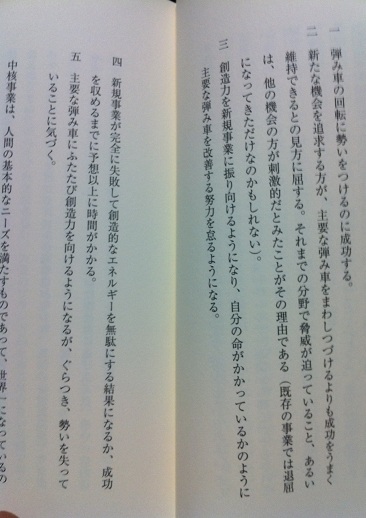 一 弾み車の回転に勢いをつけるのに成功する。
二 新たな機会を追求する方が、主要な弾み車をまわしつづけるよりも成功をうまく
維持できるとの見方に屈する。それまでの分野で脅威が迫っていること、あるい
は、他の機会の方が刺激的だとみたことがその理由である（既存の事業では退屈
になってきただけなのかもしれない）。
三 創造力を新規事業に振り向けるようになり、自分の命がかかっているかのように
主要な弾み車を改善する努力を怠るようになる。
四 新規事業が完全に失敗して創造的なエネルギーを無駄にする結果になるか、成功
を収めるまでに予想以上に時間がかかる。
五 主要な弾み車にふたたび創造力を向けるようになるが、ぐらつき、勢いを失って
いることに気づく。
中核事業は、人間の基本的なニーズを満たすものであって、世界
になっているの